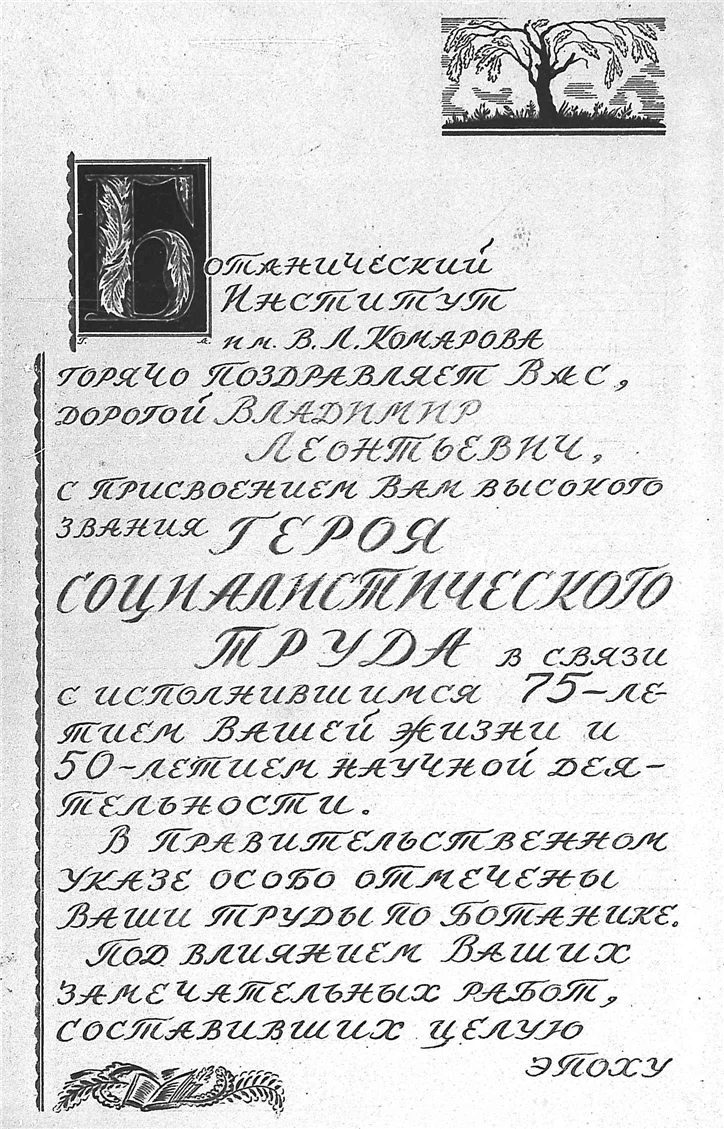 Ботанический
Институт
им. В. Л. Комарова
горячо поздравляет Вас,
дорогой Владимир
Леонтьевич,
с присвоением Вам высокого
звания ГЕРОЯ
СОЦИАЛИСТИЧЕСКОГО
ТРУДА в связи
с исполнившимся 75-ле-
тием Вашей жизни и
50-летием научной дея-
тельности.
В Правительственном
указе особо отмечены
Ваши труды по ботанике.
Под влиянием Ваших
замечательных работ,
составивших целую
эпоху